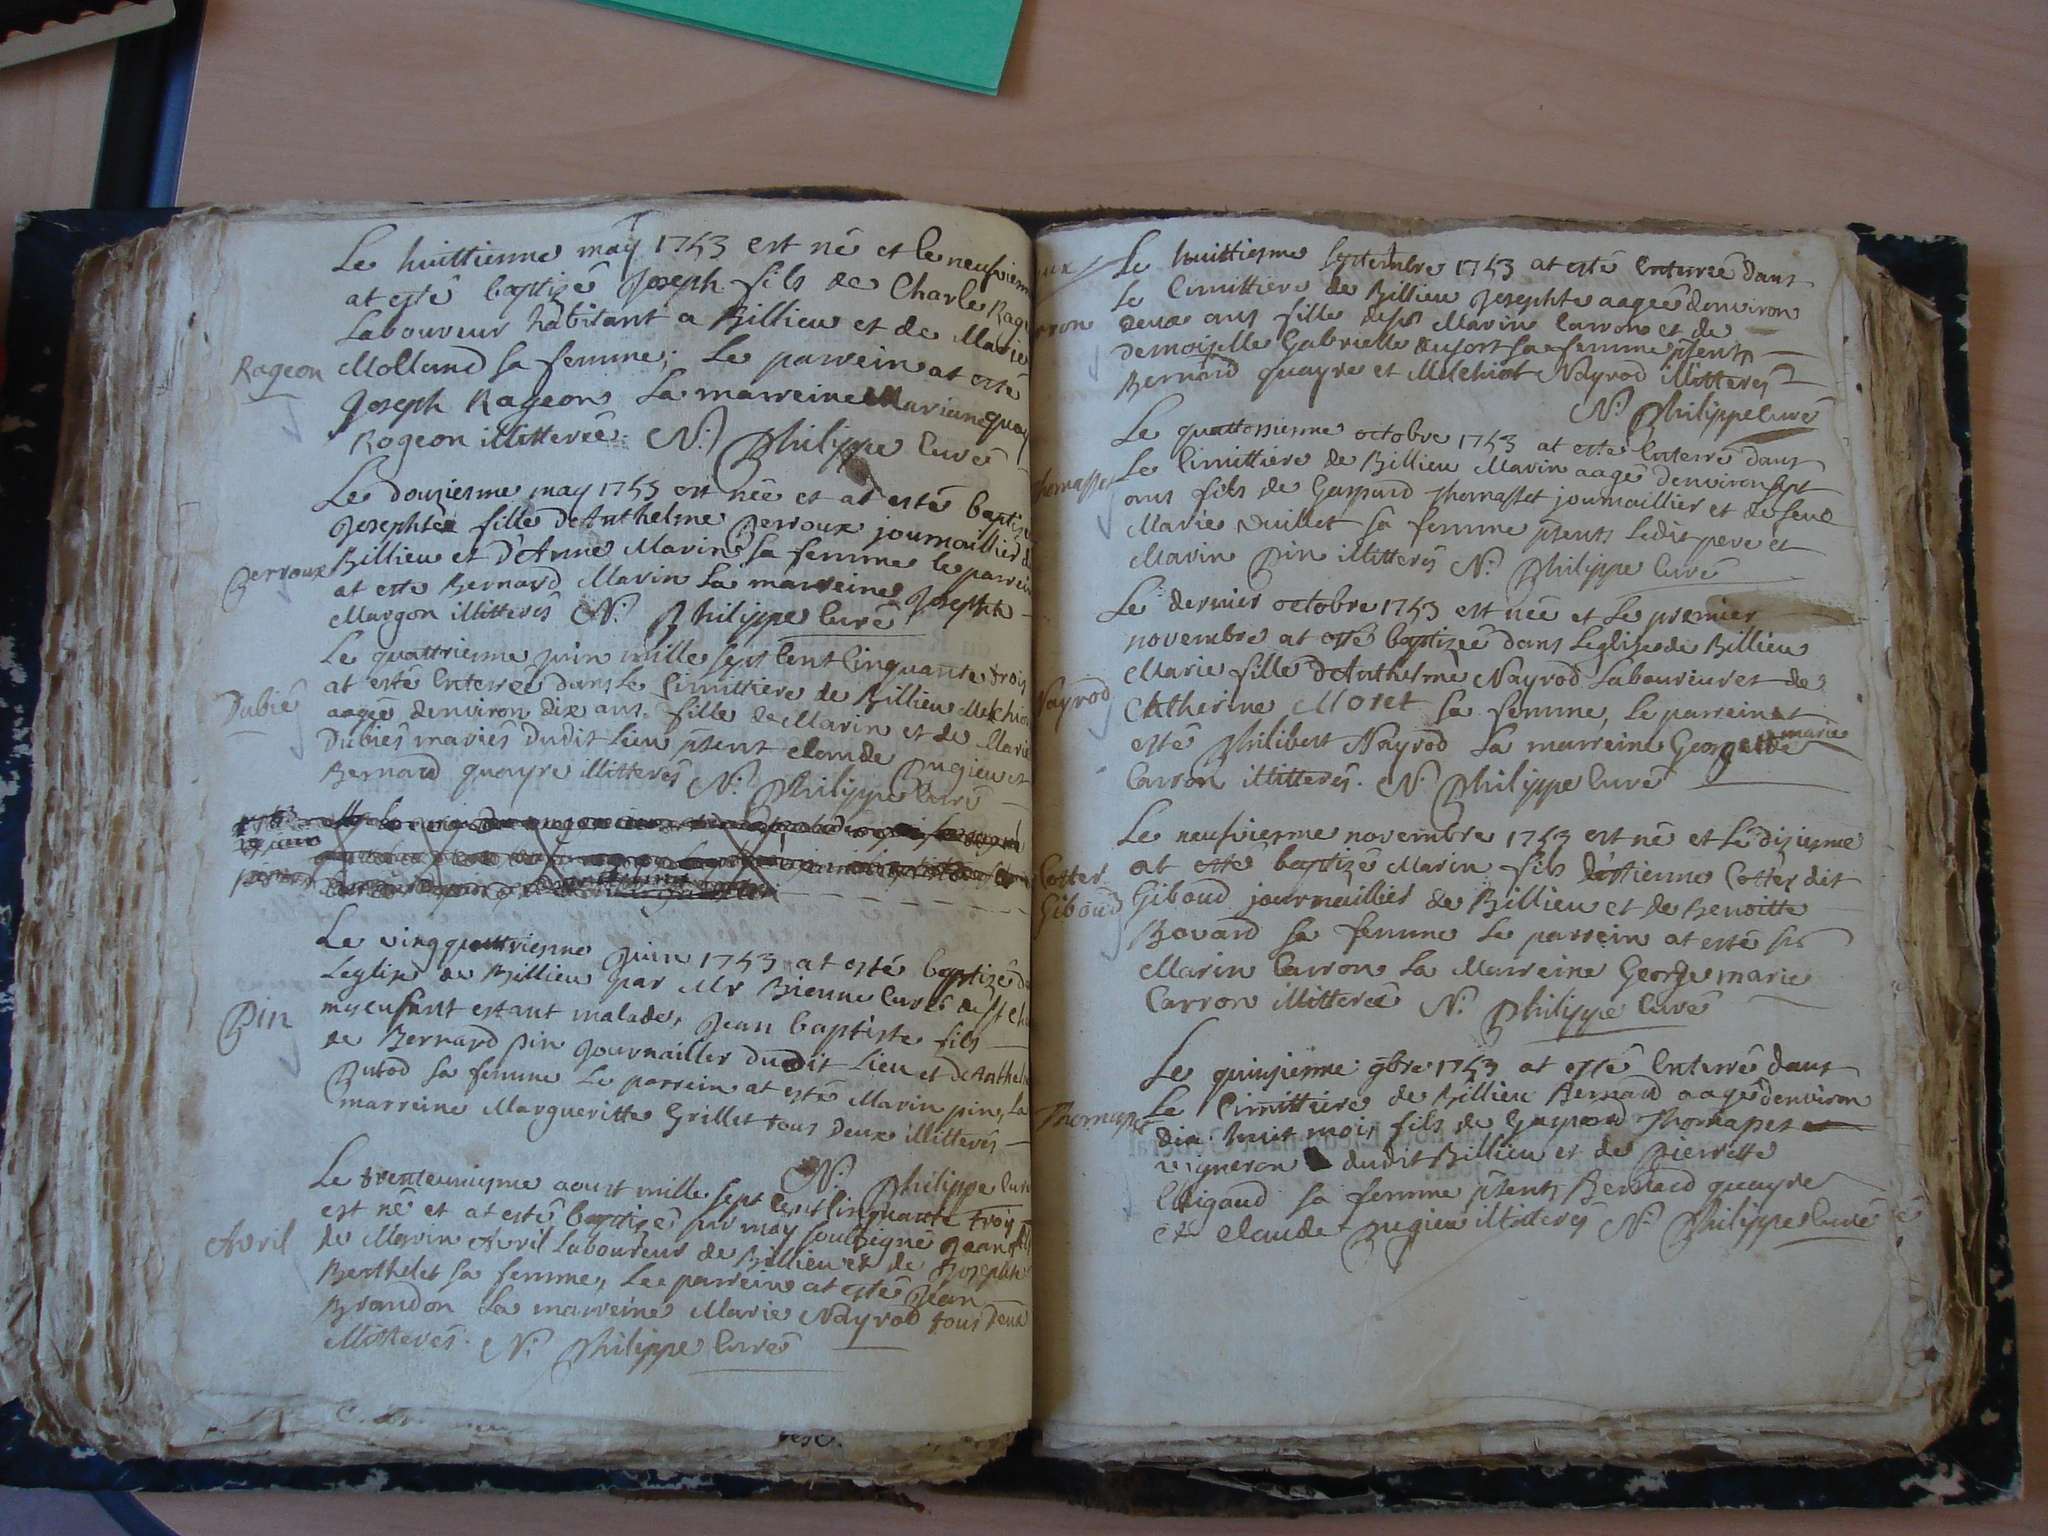 Le huittienne may 1753 est né et le neufviem
at esté baptizé Joseph fils de Charle Rag
Laboureur habitant a Billieu et de Marie
Rageon
Molland sa femme; Le parrein at esté
Joseph Rageon La marreine Marianne quay
Rogeon illitereé. N. Philippe Curé
Le dousiesme may 1753 est née et at esté baptizé
Josephte fille d'Anthelme Perroux journaillier de
Perroux
Billieu et d'Anne Marin sa femme le parrein
at esté Bernard Marin La marreine Josephte
Margon illitterés N. Philippe Curé
Le quattriesme juin mille sept cent cinquante trois
at esté Enterreé dans Le Cimittiere de Billieu Melchio
Dubié
aageé denviron dix ans. fille de Marin et de Marie
Dubiés mariés dudit Lieu psent claude Pugieu et
Bernard quayre illitterés N. Philippe Curé
Le vingquattriesme Juin 1753 at esté baptizé da
Leglise de Billieu par Mr Brienne Curé de St Cha
Pin
estant malade, Jean baptiste fils
de Bernard pin Journailler dudit Lieu et d'Anthel
Putod sa femme Le parrein at esté Marin pin, La
marreine Margueritte Grillet tous deux illitterés
N. Philippe Curé
Le trenteuniesme aoust mille sept cent cinquante trois
est né et at esté baptizé par moy soubsigné Jean fils
Avril
de Marin Avril Laboureur de Billieu et de Josephte
Berthelet sa femme, Le parrein at esté Jean
Brandon La marreine Marie Nayrod tous deux
illitterés. N. Philippe Curé
Le huittiesme septembre 1753 at esté Enterreé dans
Le Cimittiere de Billieu Josephte aageé denviron
rron
deux ans fille de sr Marin Carron et de
demoiselle Gabrielle Dufort sa femme psents
Bernard quayre et Melchiot Nayrod illitterés
N. Philippe Curé
Le quattorsienne octobre 1753 at esté Enterré dans
Le Cimittiere de Billieu Marin aagé denviron sept
Thomasset
ans fils de Gaspard Thomasset journaillier et de feue
Marie Duillet sa femme psents Ledit pere et
Marin Pin illitterés N. Philippe Curé
Le dernier octobre 1753 est née et Le premier
novembre at esté baptizeé dans Leglise de Billieu
Marie fille d'Anthelme Nayrod Laboureur et de
Nayrod
Catherine Moret sa femme, Le parrein at
esté Philibert Nayrod La marreine Georgette marie
Carron illitterés. N. Philippe Curé
Le neufviesme novembre 1753 est né et Le disiesme
at esté baptizé Marin fils d'estienne Cotter dit
Cotter
Giboud
Giboud journaillier de Billieu et de Benoitte
Bovard sa femme Le parrein at esté sr
Marin Carron La Marreine George marie
Carron illittereé N. Philippe Curé
Le quinsienne 9bre 1753 at esté Enterré dans
Thomasset
Le Cimittiere de Billieu Bernard aagé denviron
dix huit mois fils de Gaspard Thomasset
vigneron dudit Billieu et de Pierrette
Rigaud sa femme psents Bernard quayre
et claude Pugieu illitterés N. Philippe Curé